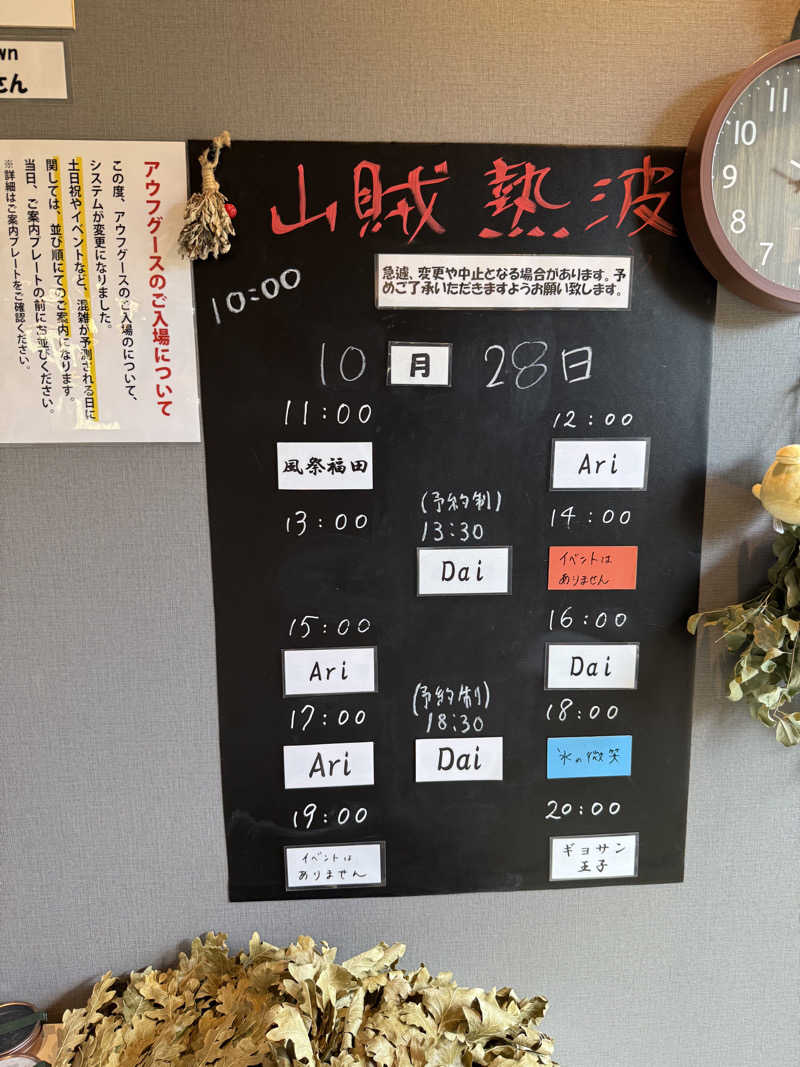 wn
さん
アウフグースのご入場について
この度、アウフグースのご入場のについて、
システムが変更になりました。
土日祝やイベントなど、混雑が予測される日に
関しては、並び順にてのご案内になります。
当日、ご案内プレートの前にお並びください。
※詳細はご案内プレートをご確認ください。
山賊 熱波
急遽、変更や中止となる場合があります。予
めご了承いただきますようお願い致します。
10:00
10 月 28日
11:00
風祭福田
12:00
Ari
13:00
(予約制)
13:30
Dai
14:00
イベントは
ありません
15:00
Ari
16:00
Dai
17:00
Ari
(予約制)
18:30
Dai
18:00
氷の微笑
19:00
イベントは
ありません
20:00
ギョサン
王子
11
10
9
8
7